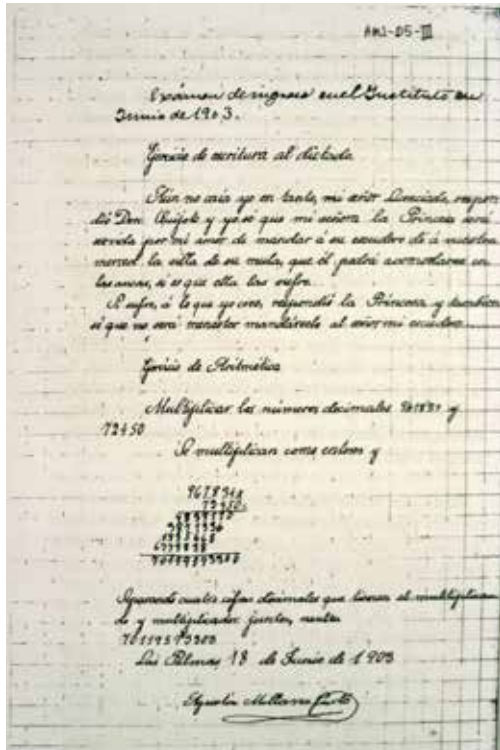 AMJ-D5-III
Exámen de ingreso en el Instituto en
Junio de 1903.
Ejercicio de escritura al dictado
Aún no caía yo en tanto, mi señor Licenciado, respon
dió Don Quijote y yo se que mi señora la Princesa será
servida por mi amor de mandar á su escudero dé á vuestra
merced la silla de su mula, que él podrá acomodarse en
las ancas, si es que ella las sufre.
Si sufre, á lo que yo creo, respondió la Princesa y también
sé que no será menester mandárselo al señor mi escudero
Ejercicio de Aritmética
Multiplicar los números decimales y
72450
Se multiplican como enteros y
Separando cuatro cifras decimales que tienen el multiplican
do y multiplicador juntos, resulta
Las Palmas 18 de Junio de 1903
Agustin Millares Carlo